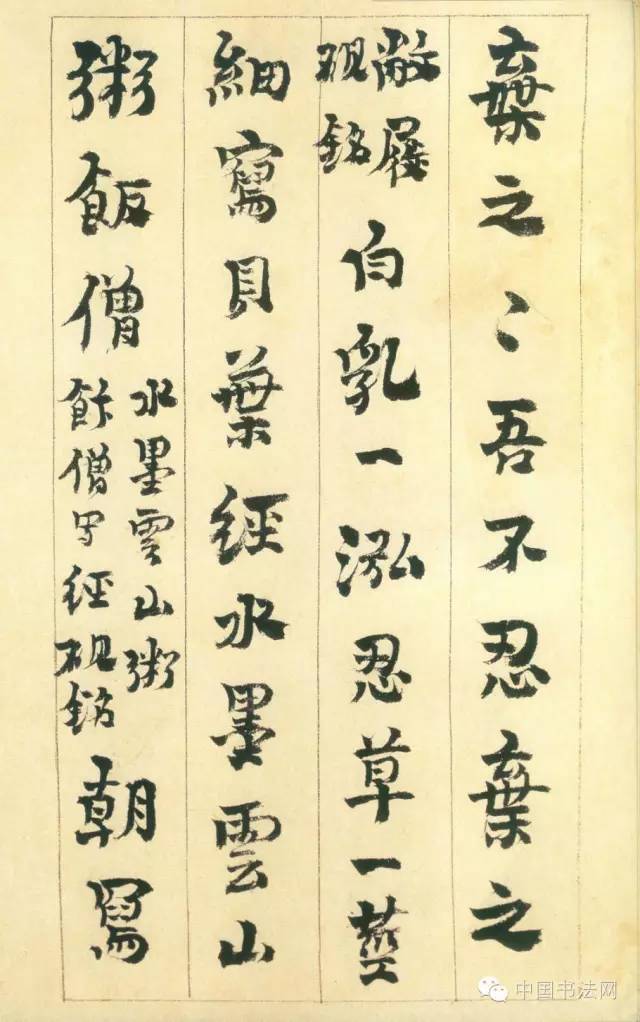 棄之〻吾不忍棄之
敝硯銘白乳一泓忍草一莖
細寫貝葉經水墨雲山
粥飯僧水墨雲山粥飯僧寫經硯銘朝寫
中国书法网